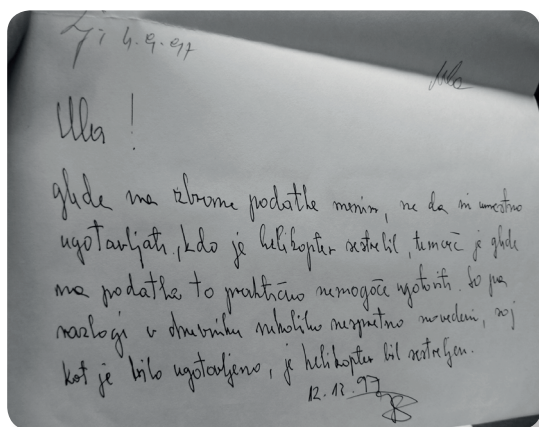 4. 9. 97
Ula
Ula !
glede na zbrane podatke menim, ne da ni umestno
ugotavljati, kdo je helikopter sestrelil, temveč je glede
na podatke to praktično nemogoče ugotoviti. So pa
razlogi v dnevniku nekoliko nespretno navedeni, saj
kot je bilo ugotovljeno, je helikopter bil sestreljen.
12. 12. 97